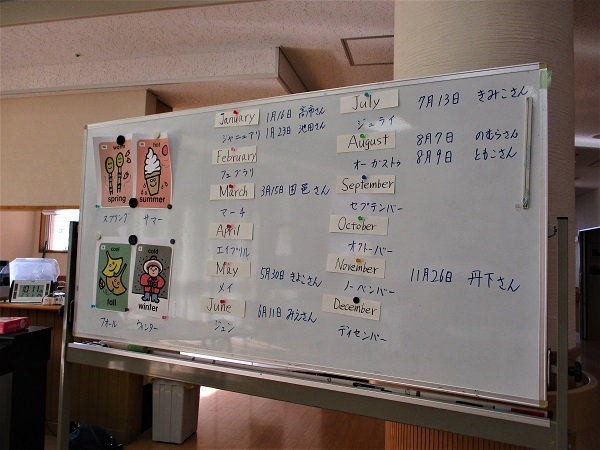 warm
spring
スプリング
hot
summer
サマー
cool
fall
フォール
cold
winter
ウィンター
January 1月16日 高市さん
ジャニュアリ 1月23日 池田さん
February
フェブラリ
March 3月15日 国邑さん
マーチ
April
エイプリル
May 5月30日 きよこさん
メイ
June 6月11日 みえさん
ジュン
July 7月13日 きみこさん
ジュライ
August 8月7日 のむらさん
オーガスト 8月9日 ともこさん
September
セプテンバー
October
オクトーバー
November 11月26日 丹下さん
ノーベンバー
December
ディセンバー